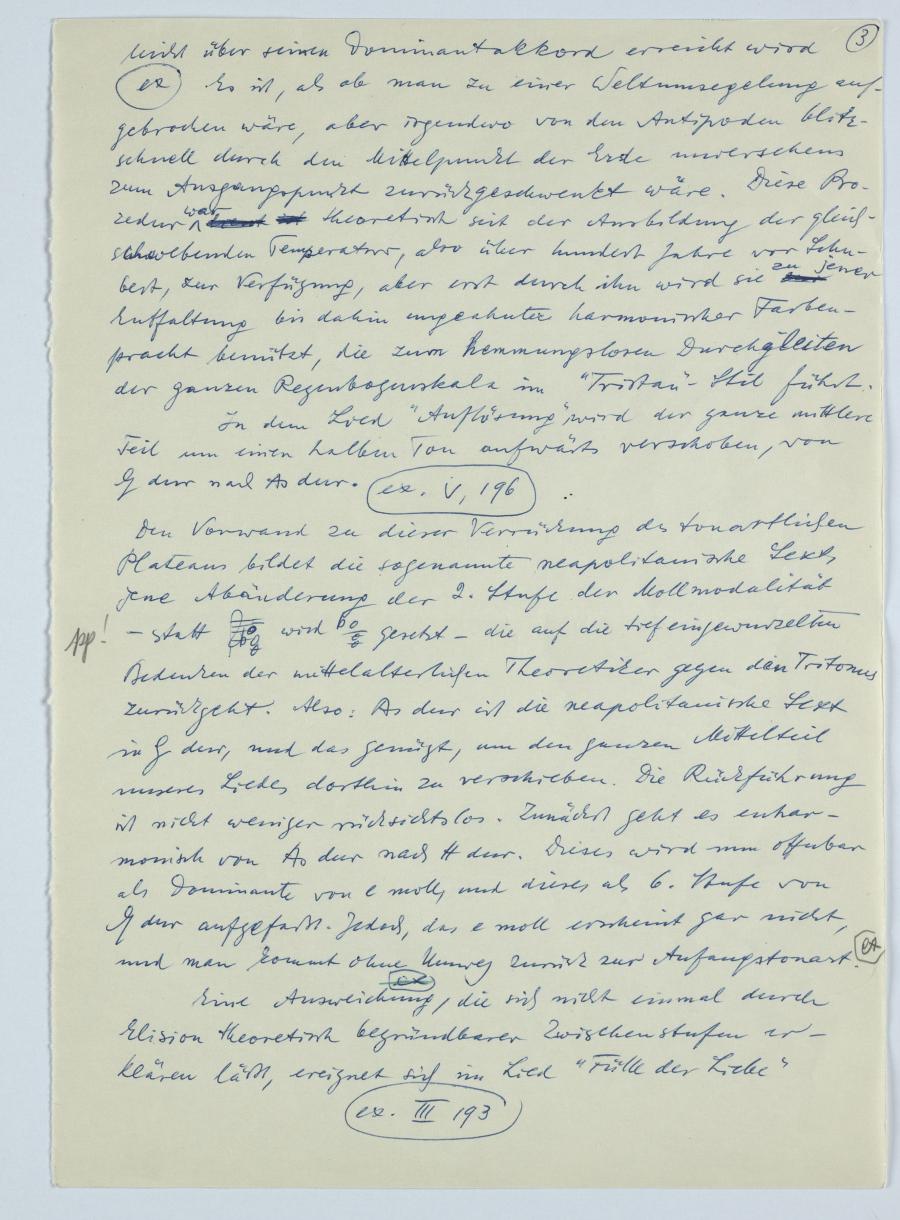 leicht über seinen Dominantakkord erreicht wird ③
(ex) Es ist, als ob man zu einer Weltumsegelung auf-
gebrochen wäre, aber irgendwo von den Antipoden blitz-
schnell durch den Mittelpunkt der Erde unversehens
zum Ausgangspunkt zurückgeschwenkt wäre. Diese Pro-
zedur war theoretisch seit der Ausbildung der gleich-
schwebenden Temperatur, also über hundert Jahre vor Schu-
bert, zur Verfügung, aber erst durch ihn wird sie zu jener
Entfaltung bis dahin ungeahnter harmonischer Farben-
pracht benützt, die zum hemmungslosen Durchgleiten
der ganzen Regenbogenskala im "Tristan"-Stil führt.
In dem Lied "Auflösung" wird der ganze mittlere
Teil um einen halben Ton aufwärts verschoben, von
G dur nach As dur. (ex. V, 196)
Den Vorwand zu dieser Verrückung des tonartlichen
Plateaus bildet die sogenannte neapolitanische Sext,
jene Abänderung der 2. Stufe der Mollmodalität
pp! – statt wird gesetzt – die auf die tiefeingewurzelten
Bedenken der mittelalterlichen Theoretiker gegen den Tritonus
zurückgeht. Also: As dur ist die neapolitanische Sext
in G dur, und das genügt, um den ganzen Mittelteil
unseres Liedes dorthin zu verschieben. Die Rückführung
ist nicht weniger rücksichtslos. Zunächst geht es enhar-
monisch von As dur nach H dur. Dieses wird nun offenbar
als Dominante von e moll, und dieses als 6. Stufe von
G dur aufgefaßt. Jedoch, das e moll erscheint gar nicht,
und man kommt ohne Umweg zurück zur Anfangstonart. (ex)
Eine Ausweichung, die sich nicht einmal durch
Elision theoretisch begründbarer Zwischenstufen er-
klären läßt, ereignet sich im Lied "Fülle der Liebe"
(ex. III 193)